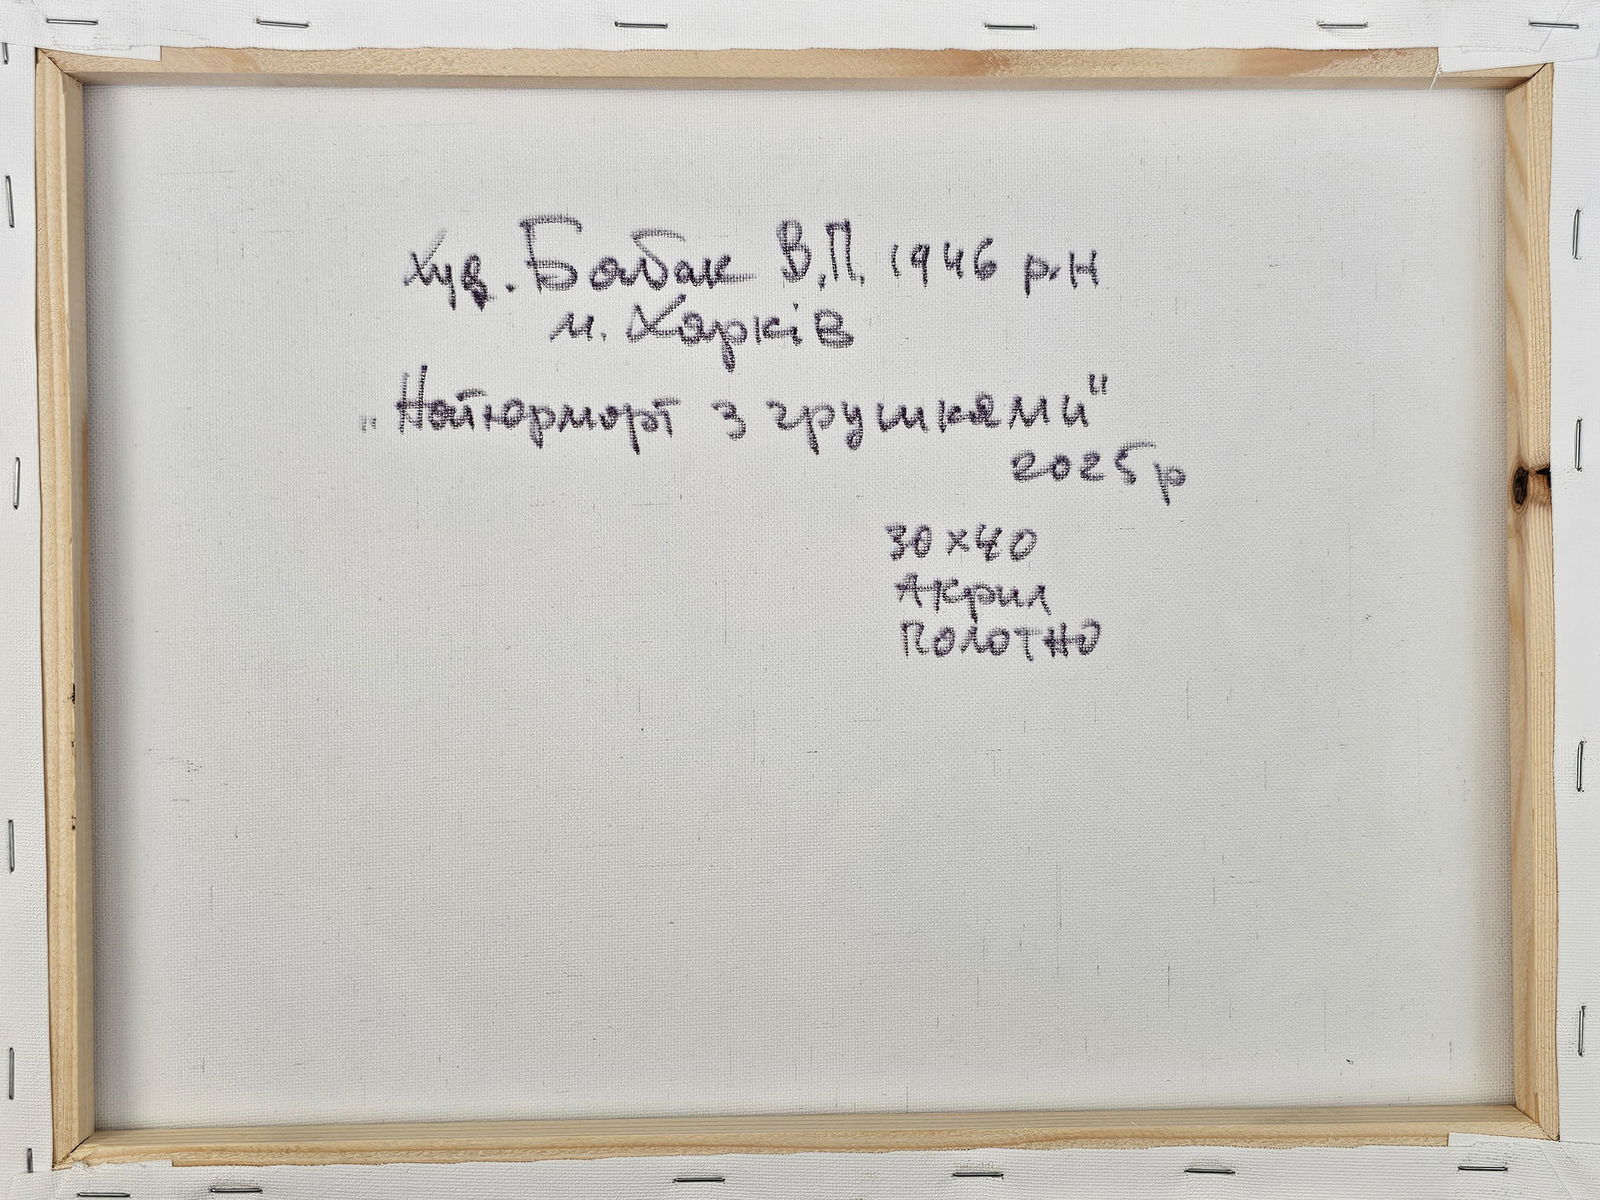 Худ. Бабак В.П. 1946 р.н
м. Харків
"Натюрморт з грушками"
2025р
30х40
Акрил
Полотно